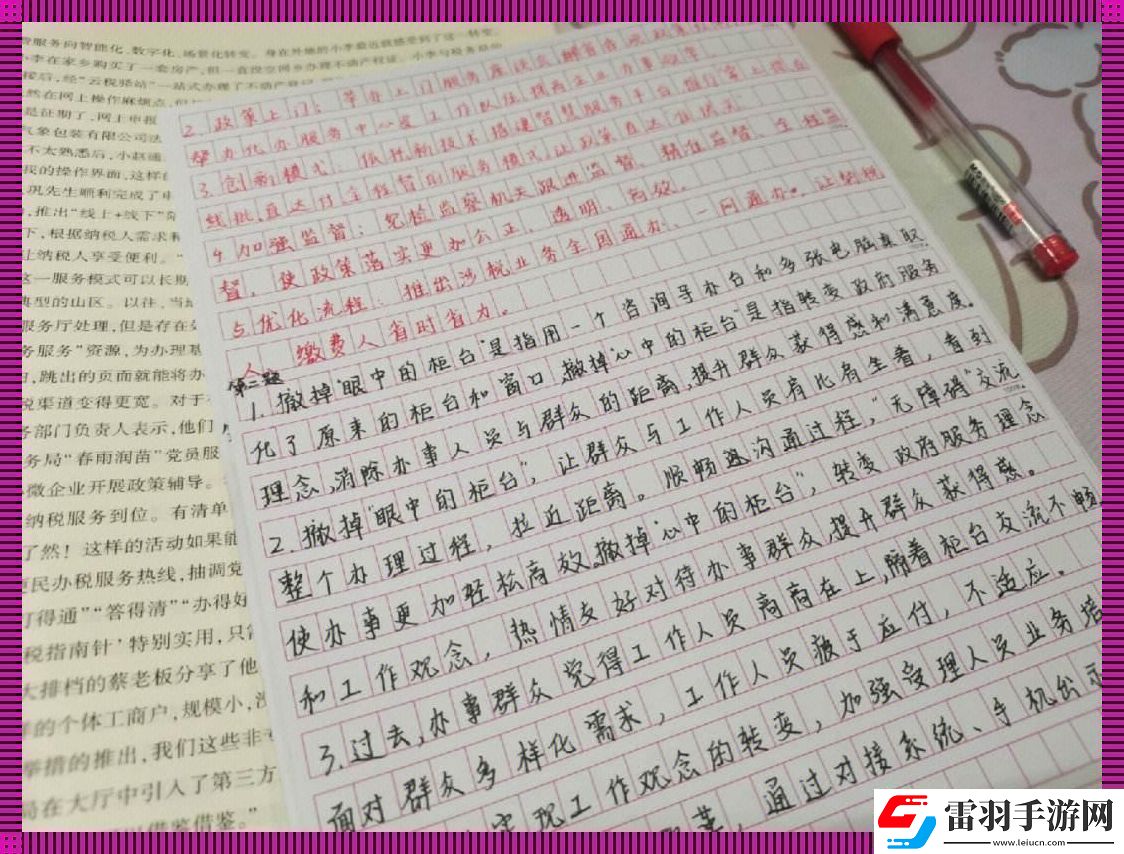 2. 政策上门：举办上门服务座谈会，
帮办代办服务中心
3. 创新模式：依托新技术搭建智慧服务平台
线批，直达付全程督的服务模式，让政策直达
4. 加强监督：纪检监察机关跟进监督、精准监督、全程监
督，使政策落实更加公正、透明、高效。
5. 优化流程：推出涉税业务全国通办、一网通办。让纳税
人、缴费人省时省力。
第二题
1. 撤掉“眼中的柜台”是指用一个咨询导办台和多张电脑桌取
代了原来的柜台和窗口，撤掉“心中的柜台”是指转变政府服务
理念，消除办事人员与群众的距离，提升群众获得感和满意度。
2. 撤掉“眼中的柜台”，让群众与工作人员肩比肩坐着，看到
整个办理过程，拉近距离。顺畅迅沟通过程，“无障碍”交流
使办事更加轻松高效。撤掉“心中的柜台”，转变政府服务理念
和工作观念，热情友好对待办事群众，提升群众获得感。
3. 过去，办事群众觉得工作人员高高在上，隔着柜台交流不畅
面对群众多样化需求，工作人员疲于应付，不适应。
实现工作观念的转变，加强受理人员业务培
通过对接系统、手机出示
税服务向智能化、数字化、场景化转变。身在外地的小李最近就感受到了这一转变。
小李在家乡购买了一套房产，但一直没空回乡办理不动产权证。小李与税务局的
接后，经“云税驿站”一站式办理了不动产登记
然在网上操作麻烦点，但
是征期了，网上申报
气象包装有限公司法
不太熟悉后，小赵通
我的操作界面，这样
巩先生顺利完成了申
，推出“线上+线下”
下，根据纳税人需求
让纳税人享受便利。”
这一服务模式可以长期
典型的山区。以往，当
服务厅处理，但是存在
务服务”资源，为办理
，跳出的页面就能将办
税渠道变得更宽。对于
务部门负责人表示，他们
务局“春雨润苗”党员服
小微企业开展政策辅导。
纳税服务到位。有清单
了然！这样的活动如果能
便民办税服务热线，抽调党
打得通”“答得清”“办得好
税指南针’特别实用，只需
大排档的蔡老板分享了他
样的个体工商户，规模小，
举措的推出，我们这些非
局在大厅中引入了第三方
以借鉴借鉴。”
雷羽手游网
www.leiucn.com